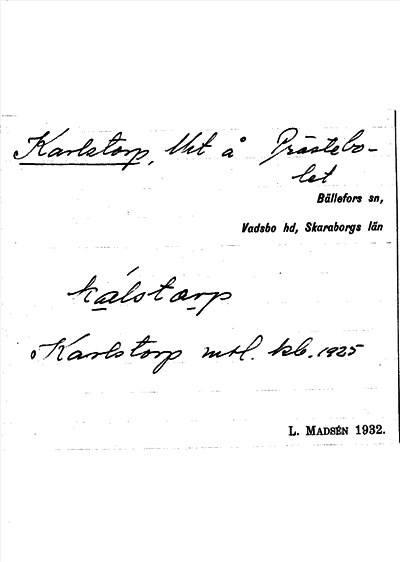 Karlstorp, Utt å Prästebo-
let
Bällefors sn,
Vadsbo hd, Skaraborgs län
kálstærp
Karlstorp mtl. kb. 1925
L. MADSÉN 1932.